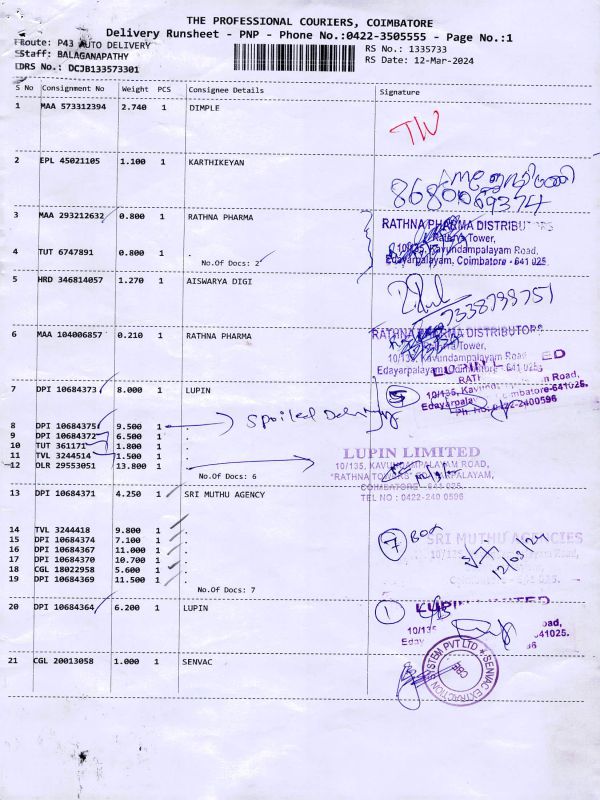 THE PROFESSIONAL COURIERS, COIMBATORE
Delivery Runsheet - PNP - Phone No.:0422-3505555 - Page No.:1
Route: P43 AUTO DELIVERY
RS No.: 1335733
Staff: BALAGANAPATHY
RS Date: 12-Mar-2024
DRS No.: DCJB133573301
S No Consignment No Weight PCS Consignee Details Signature
1 MAA 573312394 2.740 1 DIMPLE
2 EPL 45021105 1.100 1 KARTHIKEYAN
8680069374
3 MAA 293212632 0.800 1 RATHNA PHARMA
RATHNA PHARMA DISTRIBUTORS
Ratna Tower,
4 TUT 6747891 0.800 1 .
10/135, Kavundampalayam Road,
No.Of Docs: 2
Edayarpalayam, Coimbatore - 641 025.
5 HRD 346814057 1.270 1 AISWARYA DIGI
7338798751
6 MAA 104006857 0.210 1 RATHNA PHARMA
RATHNA PHARMA DISTRIBUTOR
Tower,
10/135, Kavundampalayam Road
7 DPI 10684373 8.000 1 LUPIN
5
8 DPI 10684375 9.500 1 .
Spoiled Delivery
9 DPI 10684372 6.500 1 .
10 TUT 361171 1.800 1 .
11 TVL 3244514 1.500 1 .
12 DLR 29553051 13.800 1
No.Of Docs: 6
LUPIN LIMITED
10/135, KAVUNDAMPALAYAM ROAD,
"RATHNA TOWERS" EDAYARPALAYAM,
COIMBATORE - 641 025
TEL NO : 0422-240 0596
13 DPI 10684371 4.250 1 SRI MUTHU AGENCY
14 TVL 3244418 9.800 1 .
15 DPI 10684374 7.100 1 .
16 DPI 10684367 11.000 1 .
17 DPI 10684370 10.700 1 .
18 CGL 18022958 5.600 1 .
19 DPI 10684369 11.500 1 .
No.Of Docs: 7
7 BOX
SRI MUTHU AGENCIES
12/03/24
20 DPI 10684364 6.200 1 LUPIN
1
LUPIN LIMITED
10/135
oad,
641025.
21 CGL 20013058 1.000 1 SENVAC
SENVAC EXTRACTION SYSTEM PVT LTD
CBE